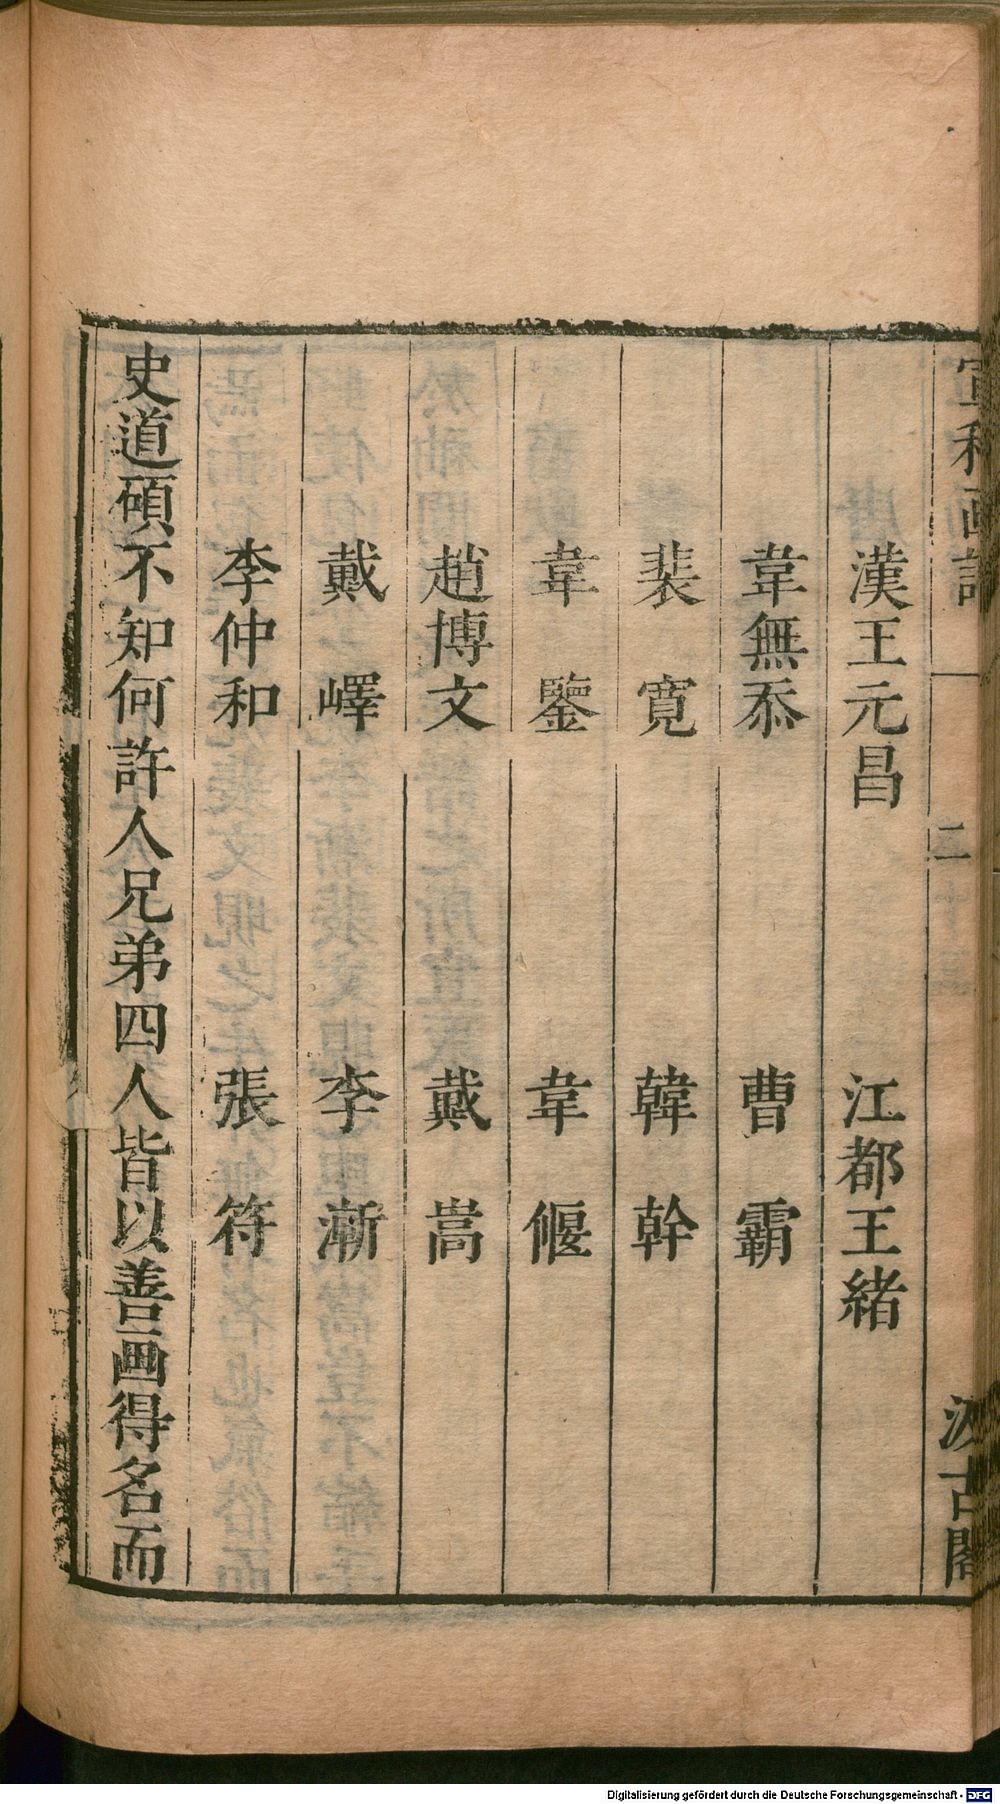 宣和画譜 二 汲古閣
漢王元昌 江都王緒
韋無忝 曹霸
裴寬 韓幹
韋鑒 韋偃
趙博文 戴嵩
戴嶧 李漸
李仲和 張符
史道碩不知何許人兄弟四人皆以善画得名而
Digitalisierung gefördert durch die Deutsche Forschungsgemeinschaft - DFG